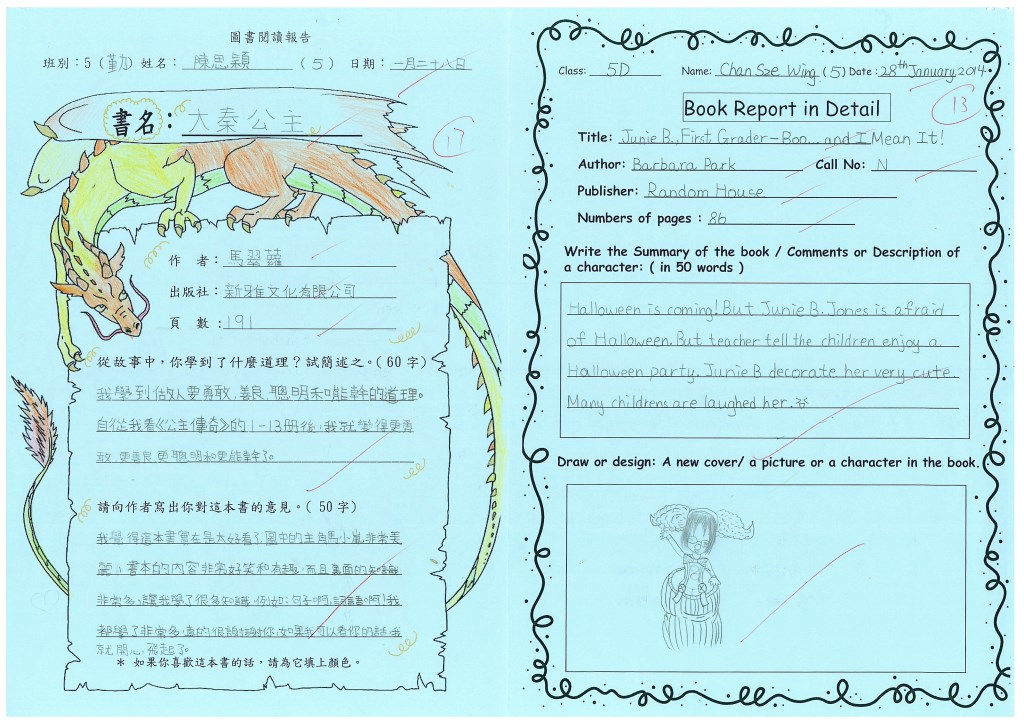 圖書閱讀報告
班別：5 (勤) 姓名： 陳思穎 (5) 日期： 一月二十八日
書名：大秦公主
17
作 者：馬翠蘿
出版社：新雅文化有限公司
頁 數：191
從故事中，你學到了什麼道理？試簡述之。( 60 字)
我學到做人要勇敢，善良，聰明和能幹的道理。
自從我看《公主傳奇》的1-13冊後，我就變得更勇
敢，更善良，更聰明和更能幹了。
請向作者寫出你對這本書的意見。( 50 字)
我覺得這本書實在是太好看了，圖中的主角馬小嵐非常美
麗，書本的內容非常好笑和有趣，而且裏面的知識
非常多，讓我學了很多知識，例如：句子啊，詞語啊！我
都學了非常多，真的很謝謝你，如果我可以看你的話，我
就開心飛起了。
* 如果你喜歡這本書的話，請為它填上顏色。
Class: 5D Name: Chan Sze Wing (5) Date : 28th January, 2014
13
Book Report in Detail
Title: Junie B., First Grader – Boo... and I Mean It!
Author: Barbara Park Call No: N
Publisher: Random House
Numbers of pages : 86
Write the Summary of the book / Comments or Description of
a character: ( in 50 words )
Halloween is coming! But Junie B. Jones is afraid
of Halloween. But teacher tell the children enjoy a
Halloween party. Junie B decorate her very cute.
Many childrens are laughed her.
Draw or design: A new cover/ a picture or a character in the book.